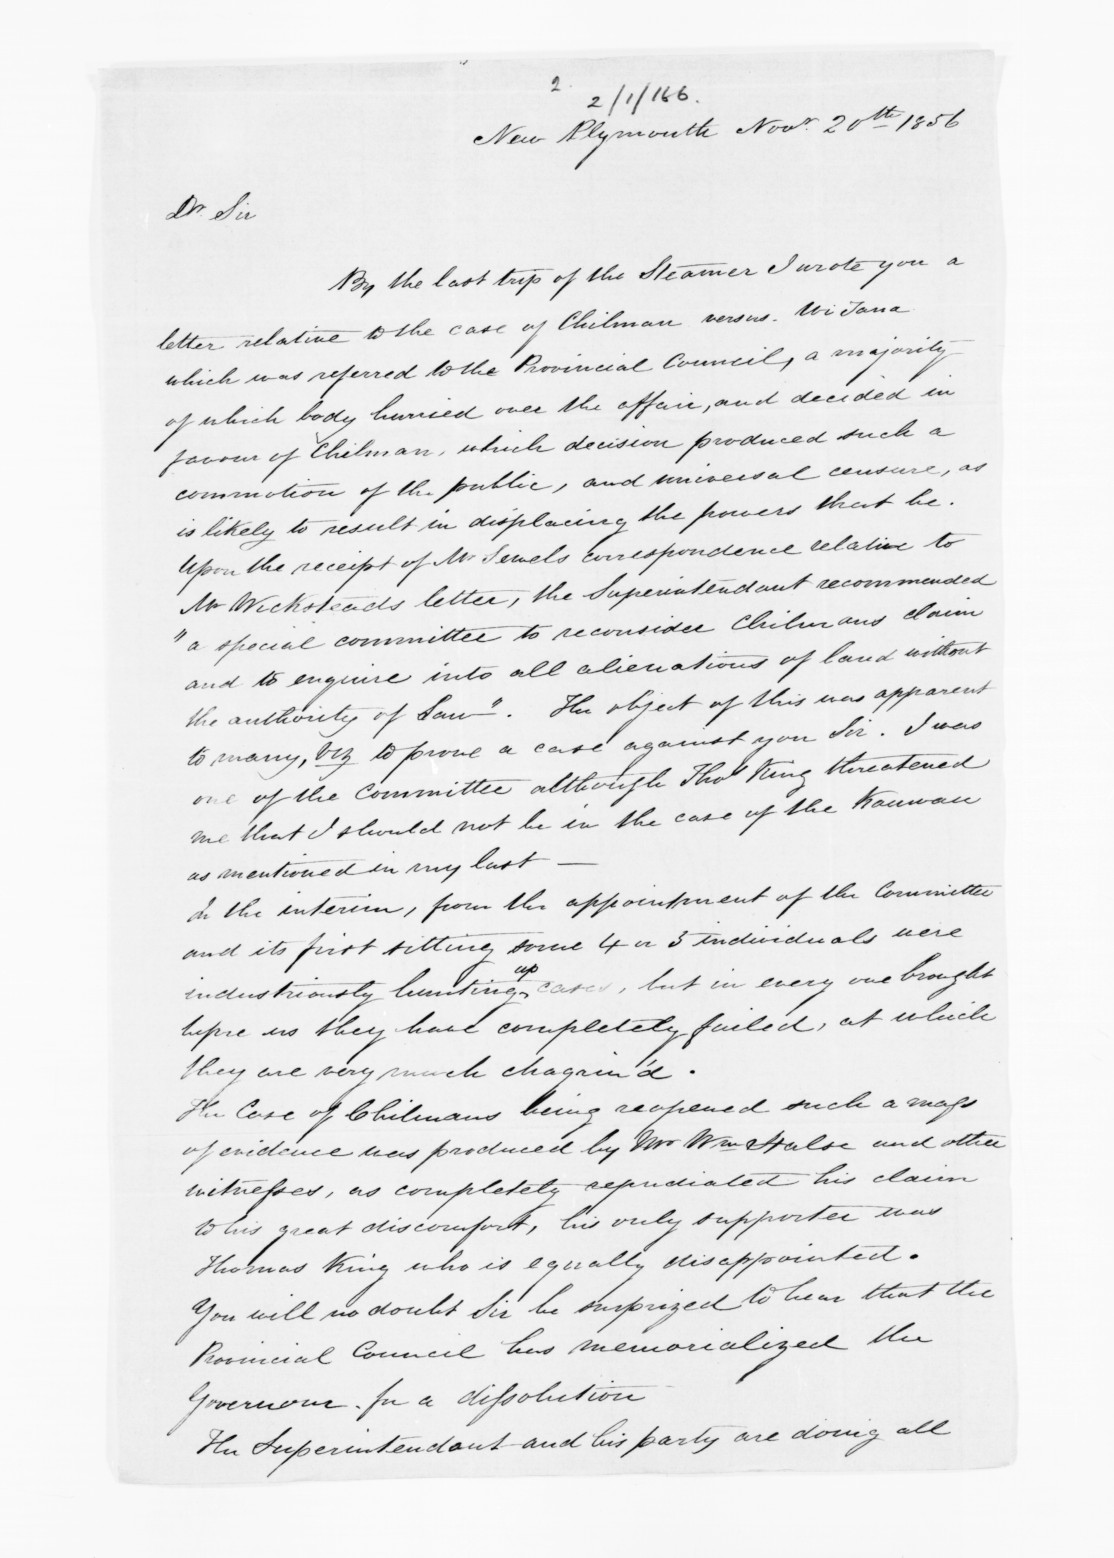 2
2/1/166.
New Plymouth Novr. 20th 1856
Dr. Sir
By the last trip of the Steamer I wrote you a
letter relative to the case of Chilman versus. Wi Tana
which was referred to the Provincial Council, a majority
of which body hurried over the affair, and decided in
favour of Chilman, which decision produced such a
commotion of the public, and universal censure, as
is likely to result in displacing the powers that be.
Upon the receipt of Mr Sewels correspondence relative to
Mr Wicksteads letter, the Superintendant recommended
"a special committee to reconsider Chilmans claim
and to enquire into all alienations of land without
the authority of Law". The object of this was apparent
to many, viz to prove a case against you Sir. I was
one of the committee although Thos King threatened
me that I should not be in the case of the Kauwau
as mentioned in my last —
In the interim, from the appointment of the Committee
and its first sitting some 4 or 5 individuals were
industriously hunting up cases, but in every one brought
before us they have completely failed, at which
they are very much chagrin'd.
The Case of Chilmans being reopened such a mass
of evidence was produced by Mr Wm Halse and other
witnesses, as completely repudiated his claim
to his great discomfort, his only supporter was
Thomas King who is equally disappointed.
You will no doubt Sir be surprized to hear that the
Provincial Council has memorialized the
Governour. for a dissolution
The Superintendant and his party are doing all